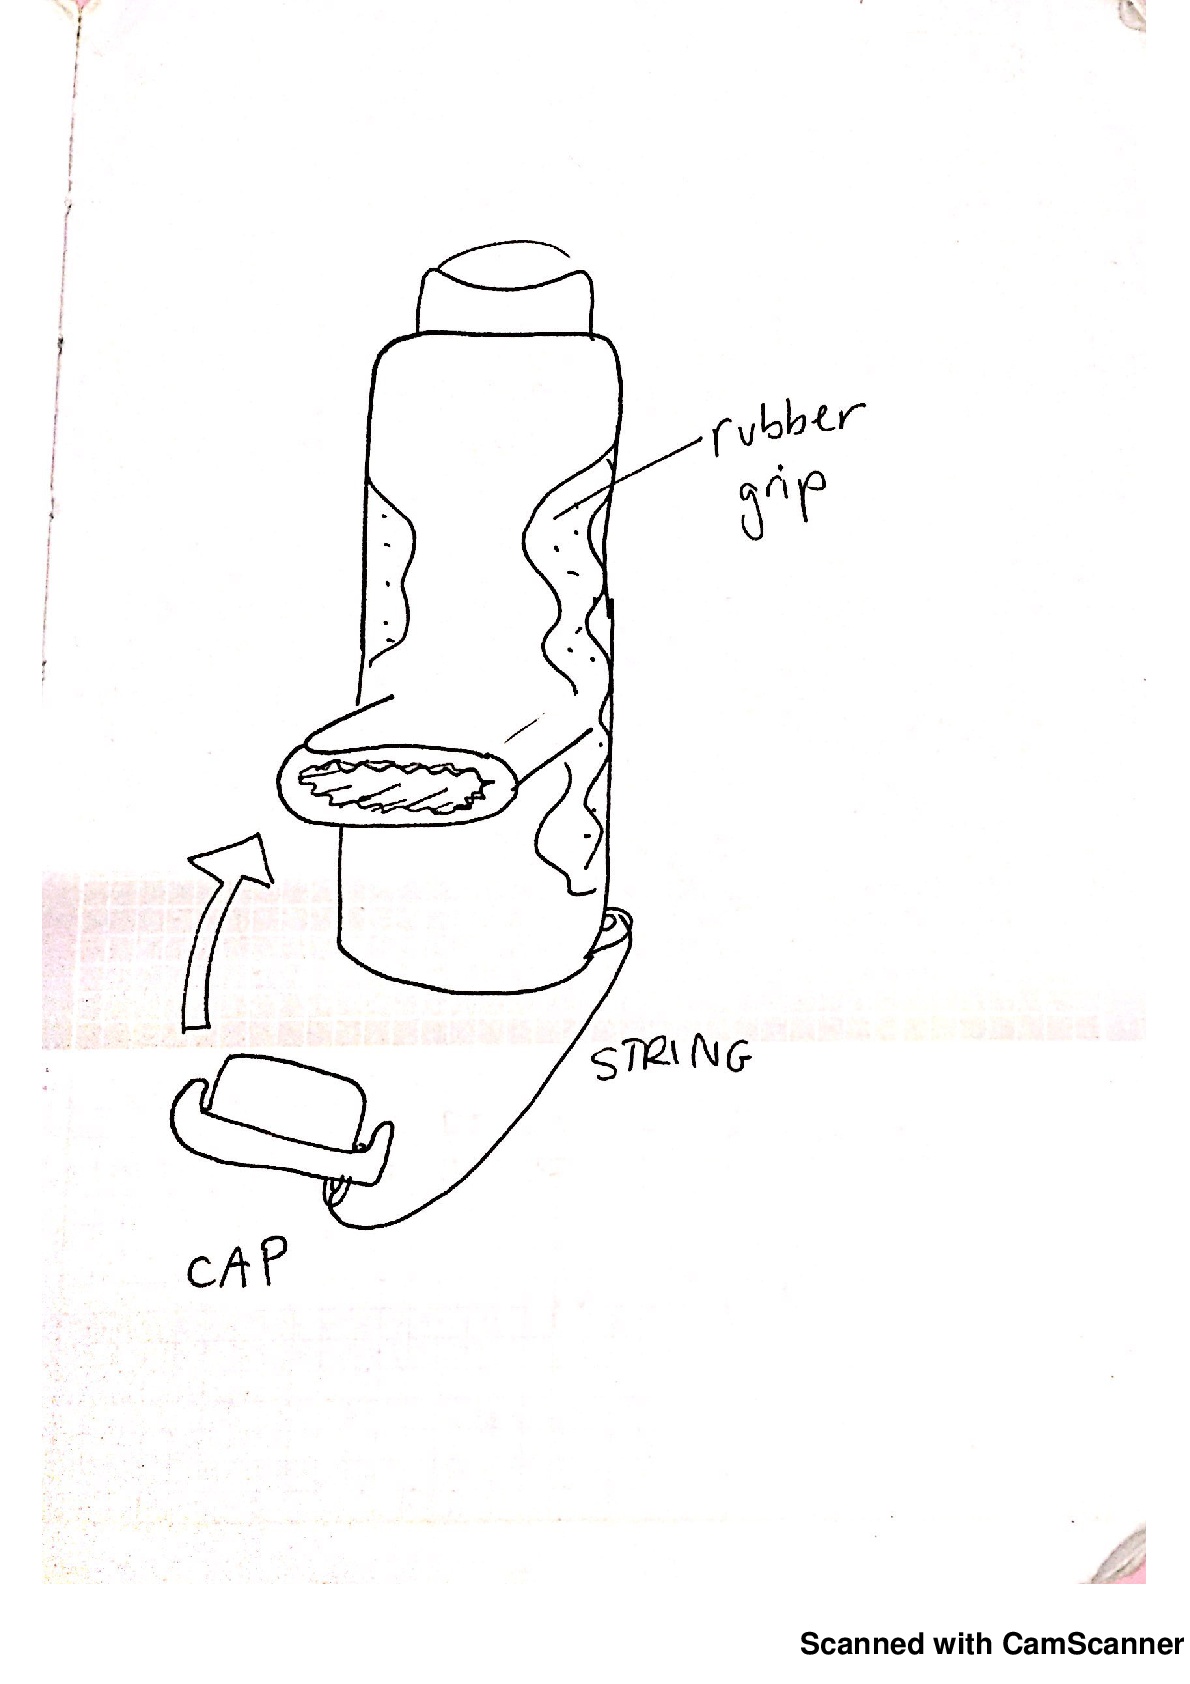 rubber
grip
STRING
CAP
Scanned with CamScanner